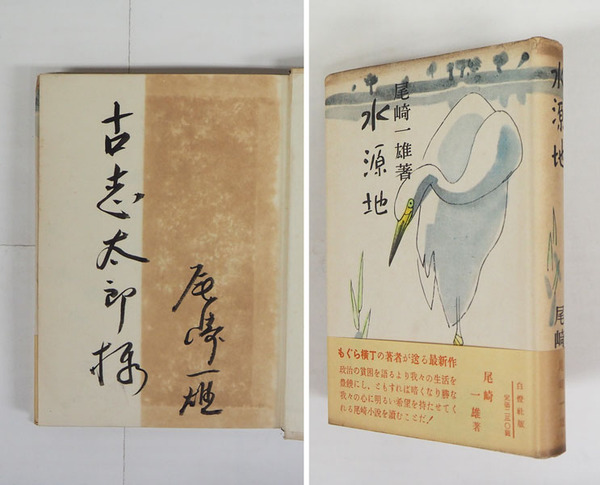 古志太郎様
尾崎一雄
尾崎一雄著
水源地
水源地
尾崎
もぐら横丁の著者が送る最新作
政治の貧困を語るより我々の生活を
豊饒にし、ともすれば暗くなり勝な
我々の心に明るい希望を持たせてく
れる尾崎小説を読むことだ！
尾崎一雄著
白燈社版
定価二三〇円